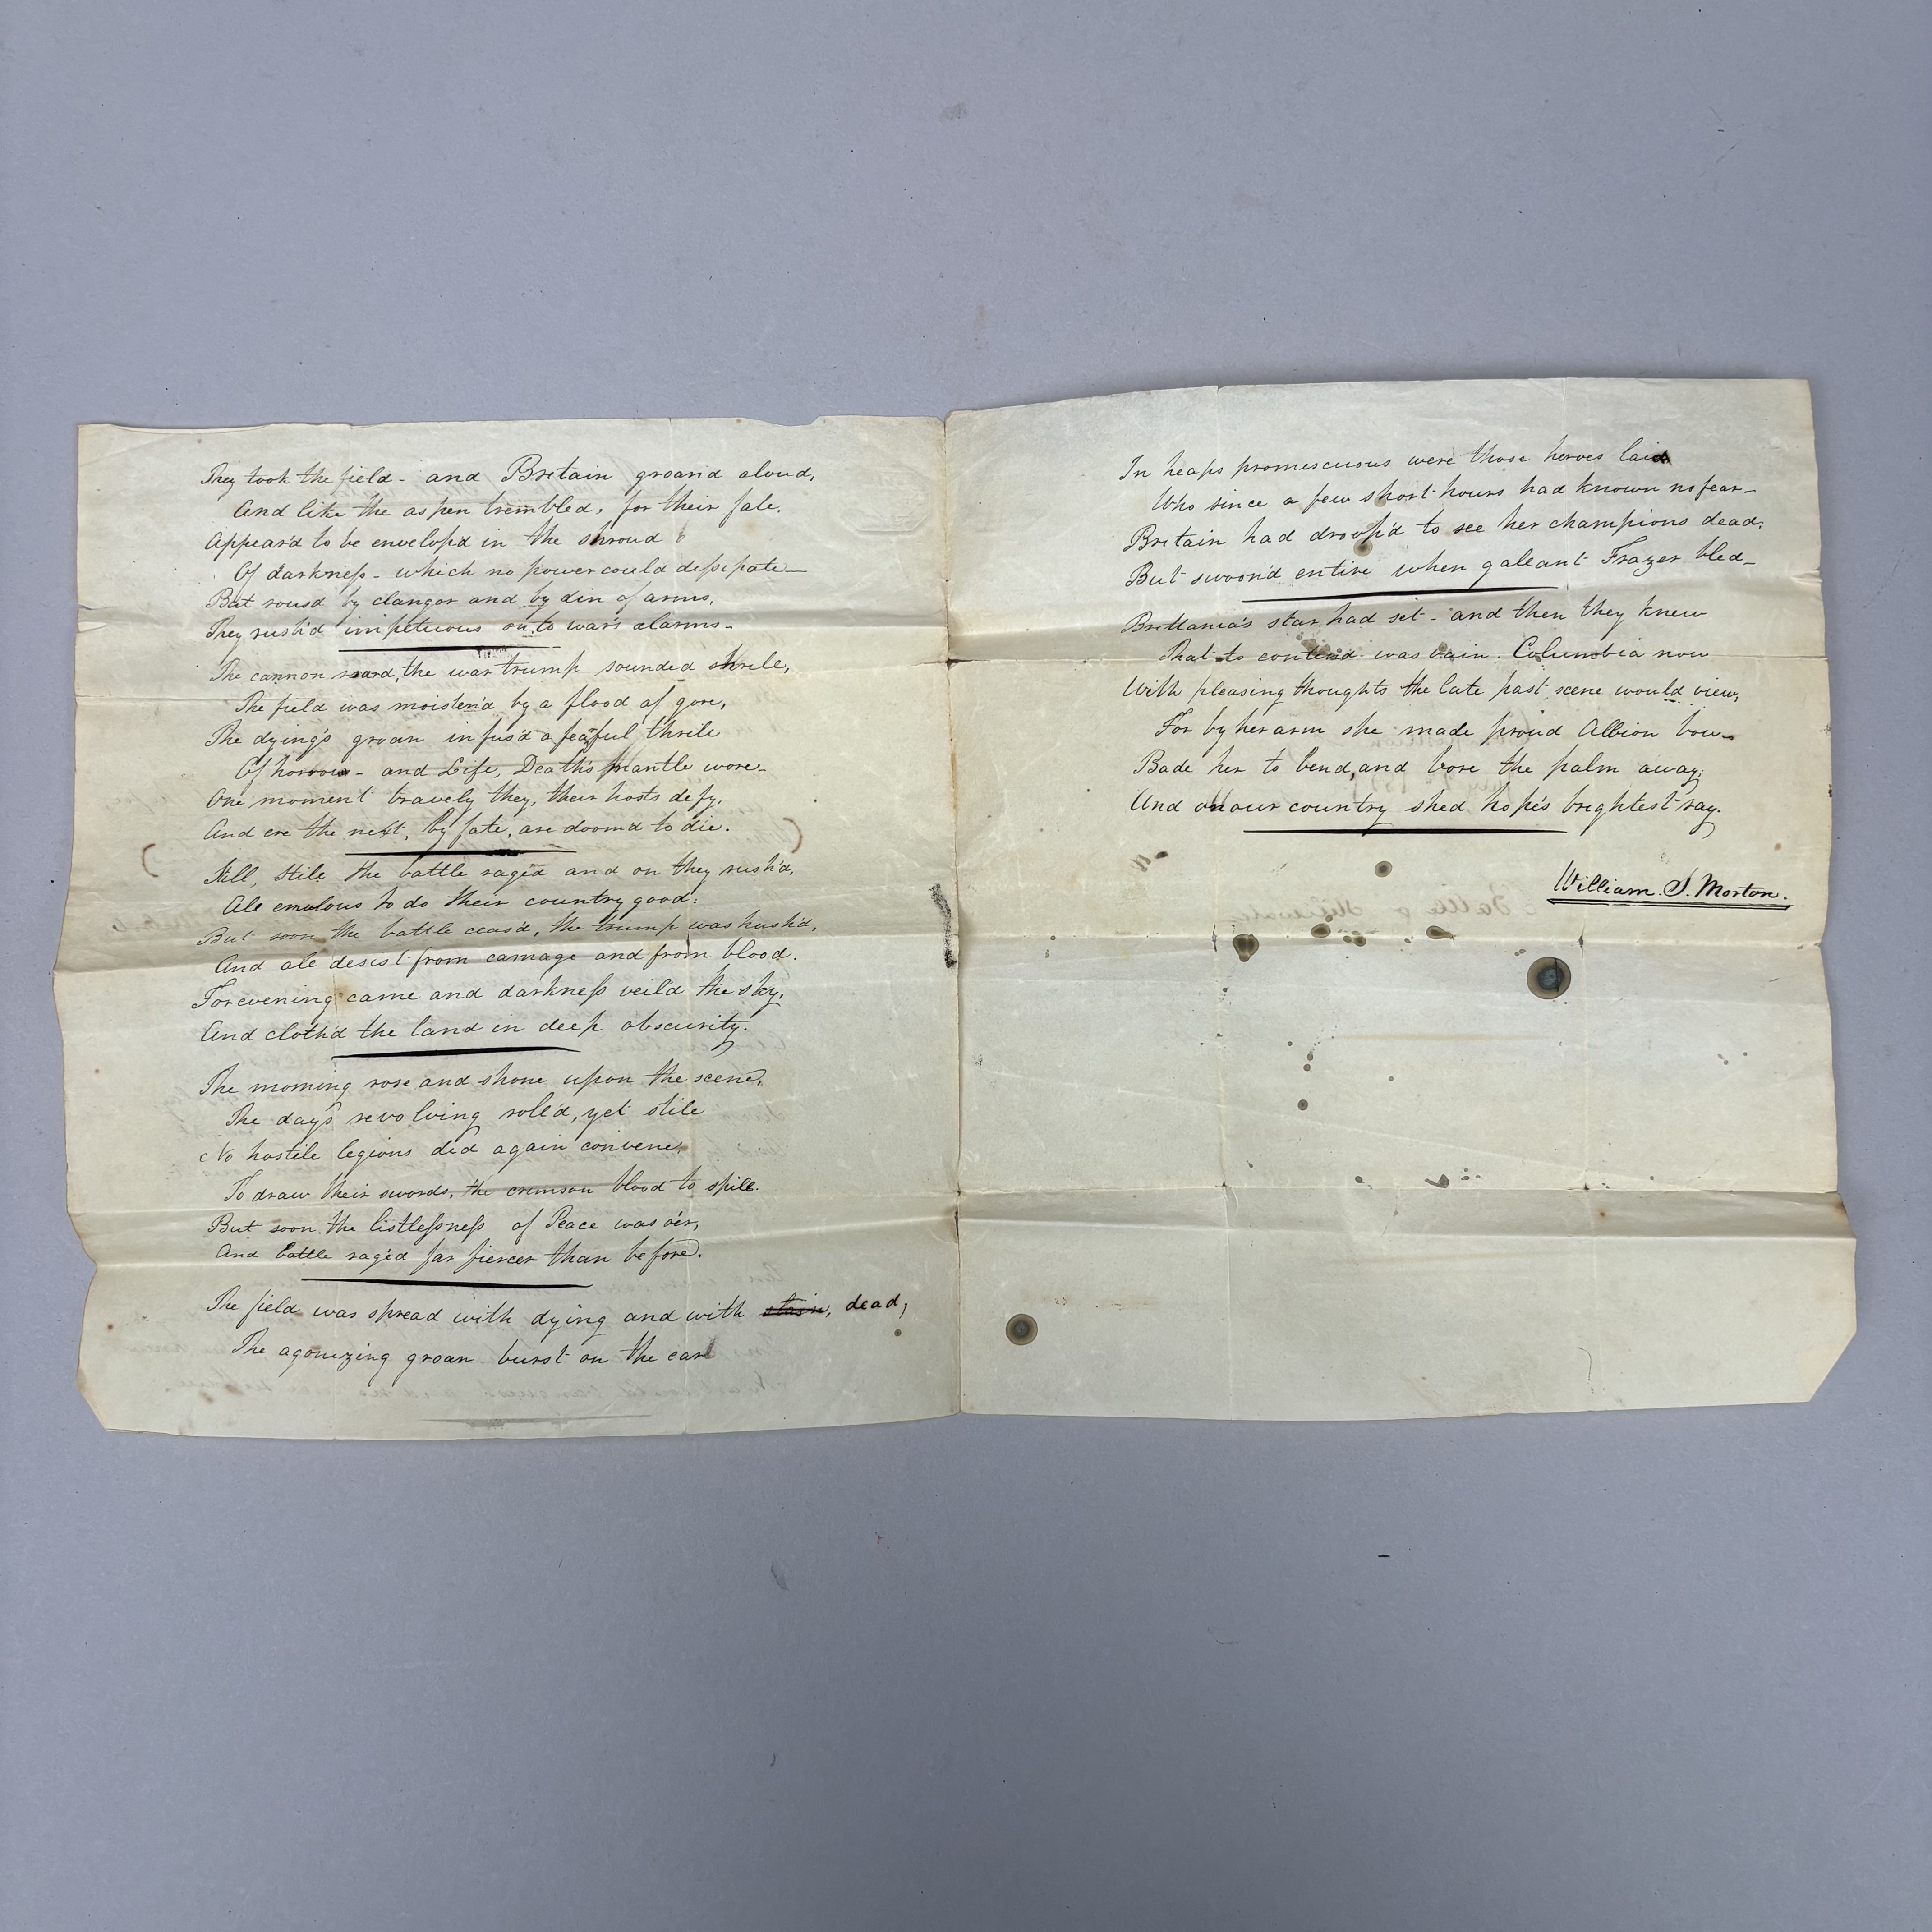 They took the field - and Britain groan'd aloud,
And like the aspen trembled, for their fate.
Appear'd to be envelop'd in the shroud
Of darkneſs - which no power could deſsipate -
But rous'd by clangor and by din of arms,
They rush'd impetuous on to war's alarms -
The cannon roard, the war trump sounded shrill,
The field was moisten'd by a flood of gore,
The dying's groan infus'd a fearful thrill
Of horror - and Life, Death's mantle wore -
One moment bravely they, their hosts defy,
And ere the next, by fate, are doom'd to die.
Still, still the battle rag'd and on they rush'd,
All emulous to do their country good:
But soon the battle ceas'd, the trump was hush'd,
And all desist from carnage and from blood.
For evening came and darkneſs veil'd the sky,
And cloth'd the land in deep obscurity.
The morning rose and shone upon the scene,
The day's revolving roll'd, yet still
No hostile legions did again convene,
To draw their swords, the crimson blood to spill.
But soon the listleſsneſs of Peace was o'er,
And battle rag'd far fiercer than before.
The field was spread with dying and with slain, dead,
The agonizing groan burst on the ear
In heaps promescuous were those heroes laid
Who since a few short hours had known no fear -
Britain had droop'd to see her champions dead,
But swoon'd entire when gallant Frazer bled -
Brittania's star had set - and then they knew
That to contend was vain. Columbia now
With pleasing thoughts the late past scene would view,
For by her arm she made proud Albion bow -
Bade her to bend, and bore the palm away;
And on our country shed hope's brightest ray.
William S. Morton.